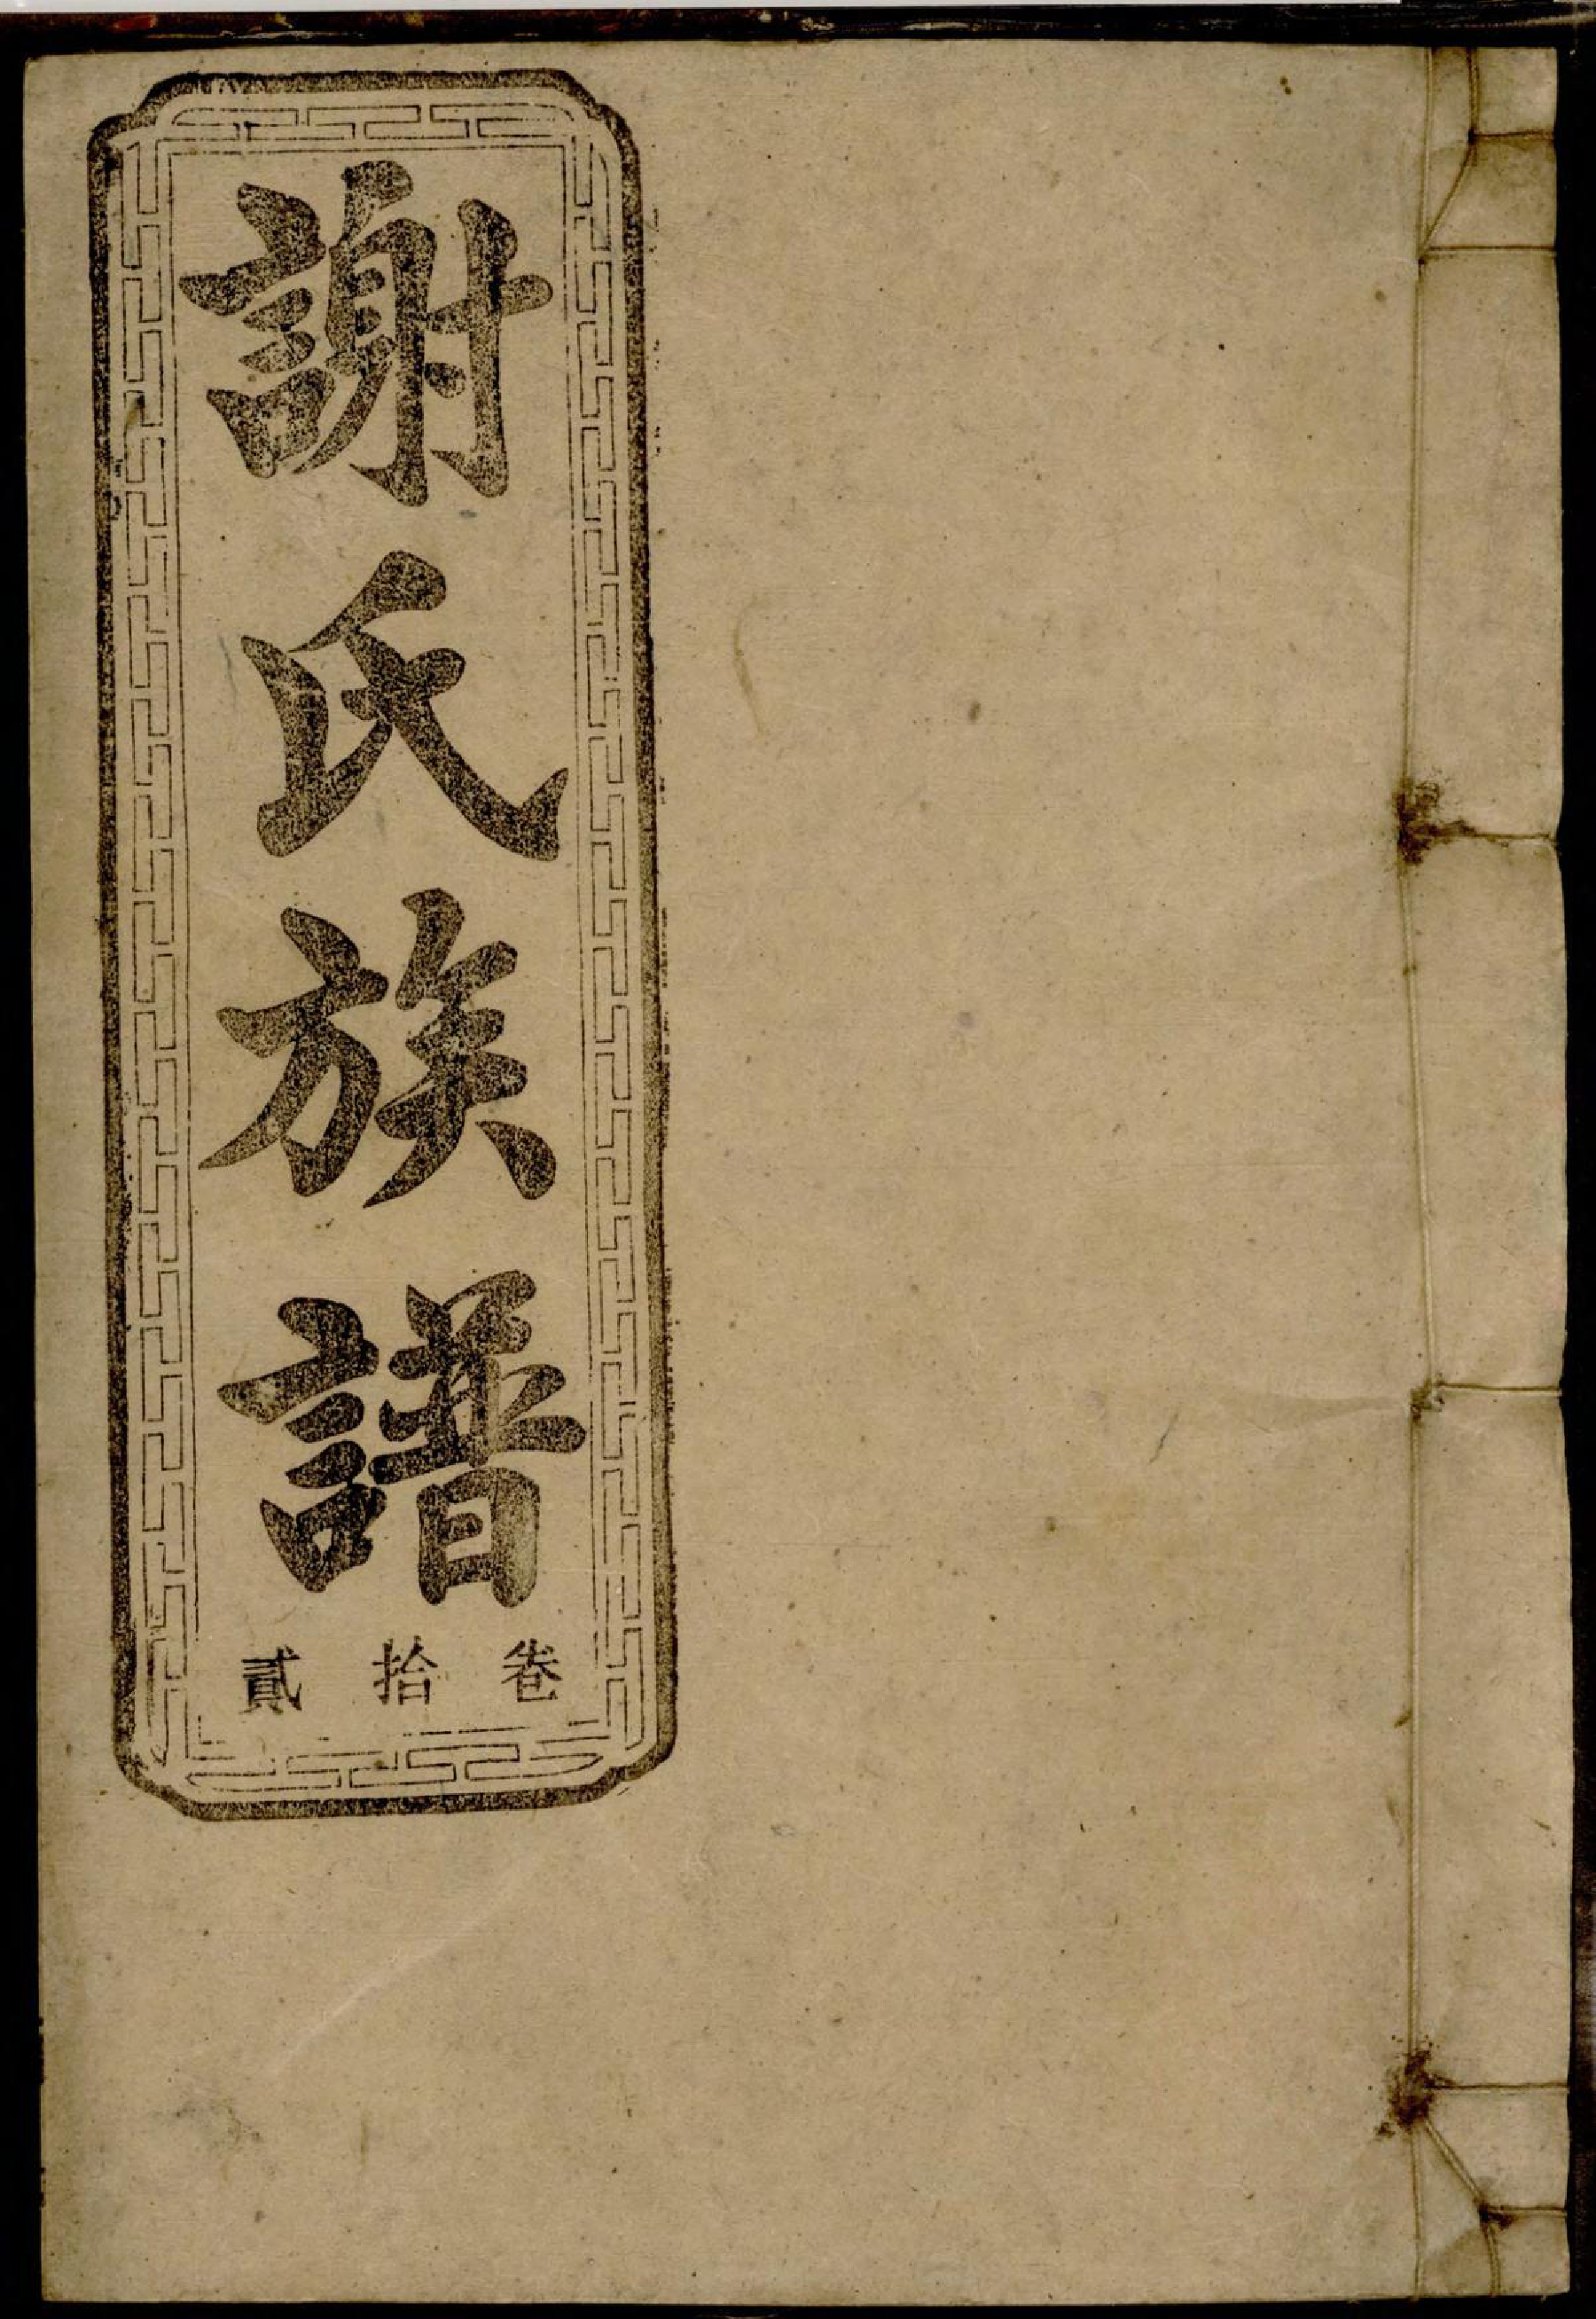 謝氏族譜
卷拾貳